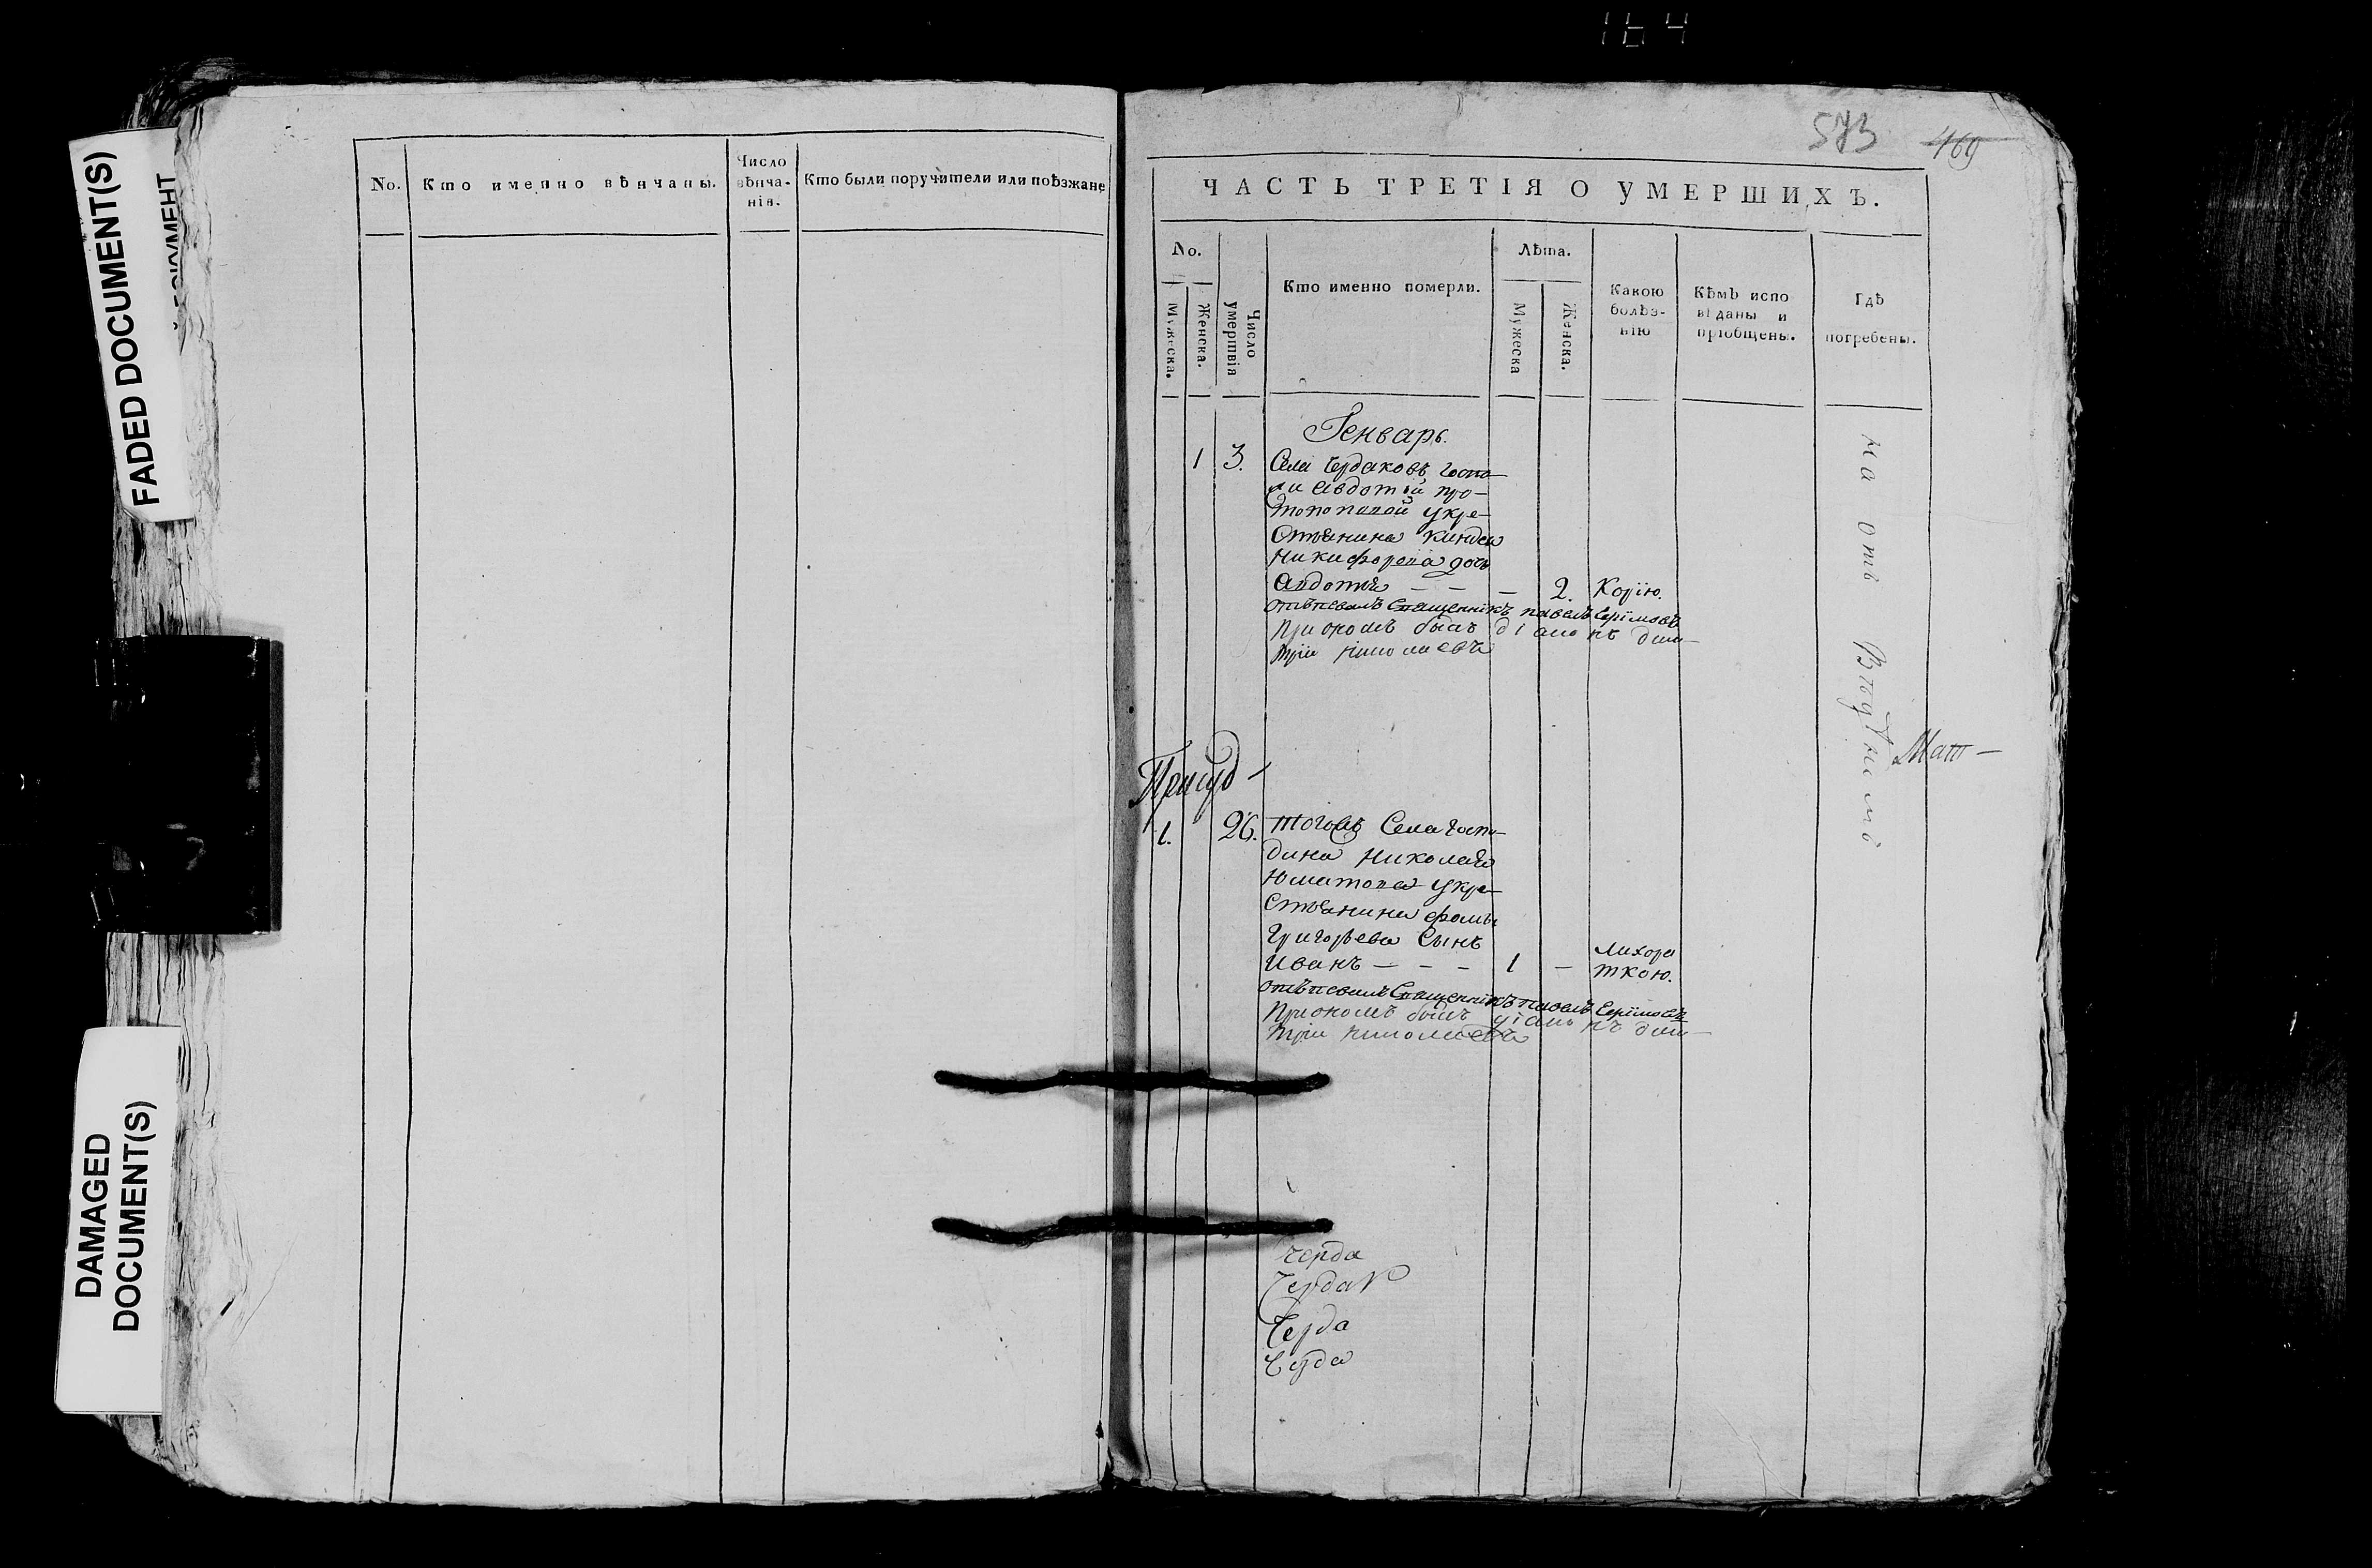 164
FADED DOCUMENT(S)
ДОКУМЕНТ
DAMAGED
DOCUMENT(S)
No.
Кто именно вѣнчаны.
Число
вѣнча-
нія.
Кто были поручители или поѣзжане
573
460
ЧАСТЬ ТРЕТІЯ О УМЕРШИХЪ.
No.
Мужеска.
Женска.
Число
умертвія
Кто именно померли.
Лѣта.
Мужеска
Женска.
Какою
болѣз-
нію
Кѣмъ испо
віданы и
пріобщены.
Гдѣ
погребены.
Генварь.
1 3. Села Чердаковъ Госпо-
жи Авдотьи про-
топоповой укре-
стьянина
Никифорова дочь
Авдотья — — — 2. Корію.
отпевалъ Священникъ павелъ
При ономъ былъ діаконъ дми-
трій николаевъ
на отв
Мат—
1. 26. тогожъ Села Госпо-
дина Николая
Юматова укре-
стьянина фомы
Григорьева Сынъ
Иванъ — — — 1 — Лихора
ткою.
отпевалъ Священникъ павелъ
При ономъ былъ діаконъ дми-
трій николаевъ
Черда
Чердак
Черда
Черда